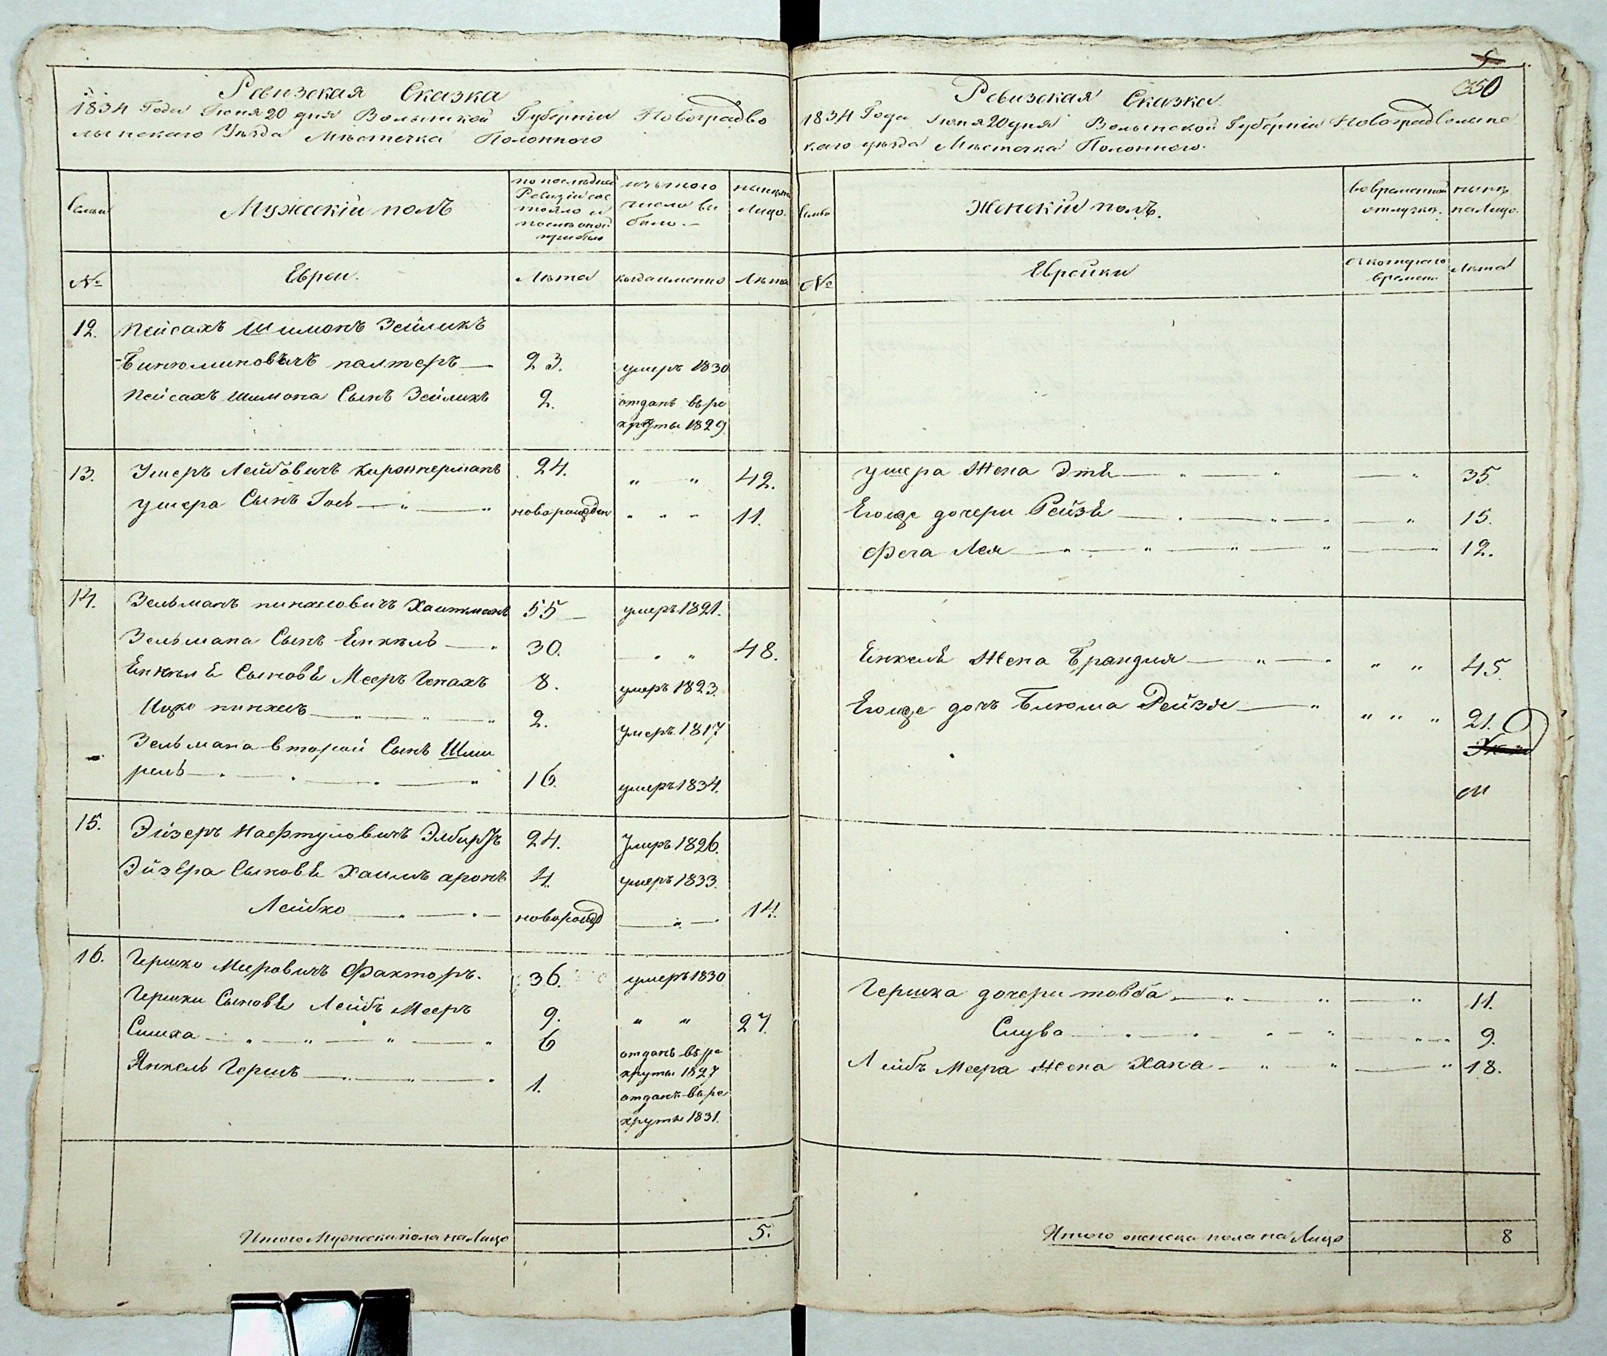 Ревизская Сказка
1834 Года Июня 20 дня Волынской Губернiи Новоградво
лынского Уѣзда Мѣстечка Полонного
Семьи
Мужескiй полъ
по послѣдней
Ревизiи сос
тояло и
послѣ оной
прибыло
изъ того
числа вы
было
нынѣ на
Лицо.
№
Евреи.
Лѣта
когда именно
Лѣта
12. Пейсахъ Шимонъ Зейликъ
Бинюминовичъ палтеръ 23. умеръ 1830
Пейсахъ Шимона Сынъ Зейликъ 2. отданъ въ ре
круты 1829
13. Ушеръ Лейбовичъ 24. " " 42.
ушера Сынъ новорожден " " " 11.
14. Зельманъ пинхасовичъ 55 умеръ 1821.
Зельмана Сынъ Енкель 30. " " 48.
Енкеля Сыновья Мееръ 8. умеръ 1823
Ицко пинхасъ 2. умеръ 1817
Зельмана второй Сынъ Шми
рель 16. умеръ 1834.
15. Эйзеръ Нафтуловичъ 24. Умеръ 1826.
Эйзера Сыновья Хаимъ аронъ 4. умеръ 1833.
Лейбко новорожд " 14.
16. Гершко Мееровичъ Факторъ. 36. умеръ 1830
Гершки Сыновья Лейбъ Мееръ 9. " " 27.
Симха 6 отданъ въ ре
круты 1827
Янкель Гершъ 1. отданъ въ ре
круты 1831.
Итого Мужеска пола на Лицо 5.
350
Ревизская Сказка.
1834 Года Июня 20 дня Волынской Губернiи Новоградволынс
каго уѣзда Мѣстечка Полонного.
Семьи
Женскiй полъ.
во временной
отлучкѣ.
нынѣ
на Лицо.
№
Еврейки
съ которого
времени
Лѣта
ушера Жена Этя " 35
Его же дочери Рейзя " 15.
Фега Лея " 12.
Енкеля Жена Брандля " " 45
Его же дочъ Блюма Рейзя " " " 21.
Гершка дочери товба " 11.
Слува " 9.
Лейбъ Меера Жена Хана " 18.
Итого женска пола на Лицо 8